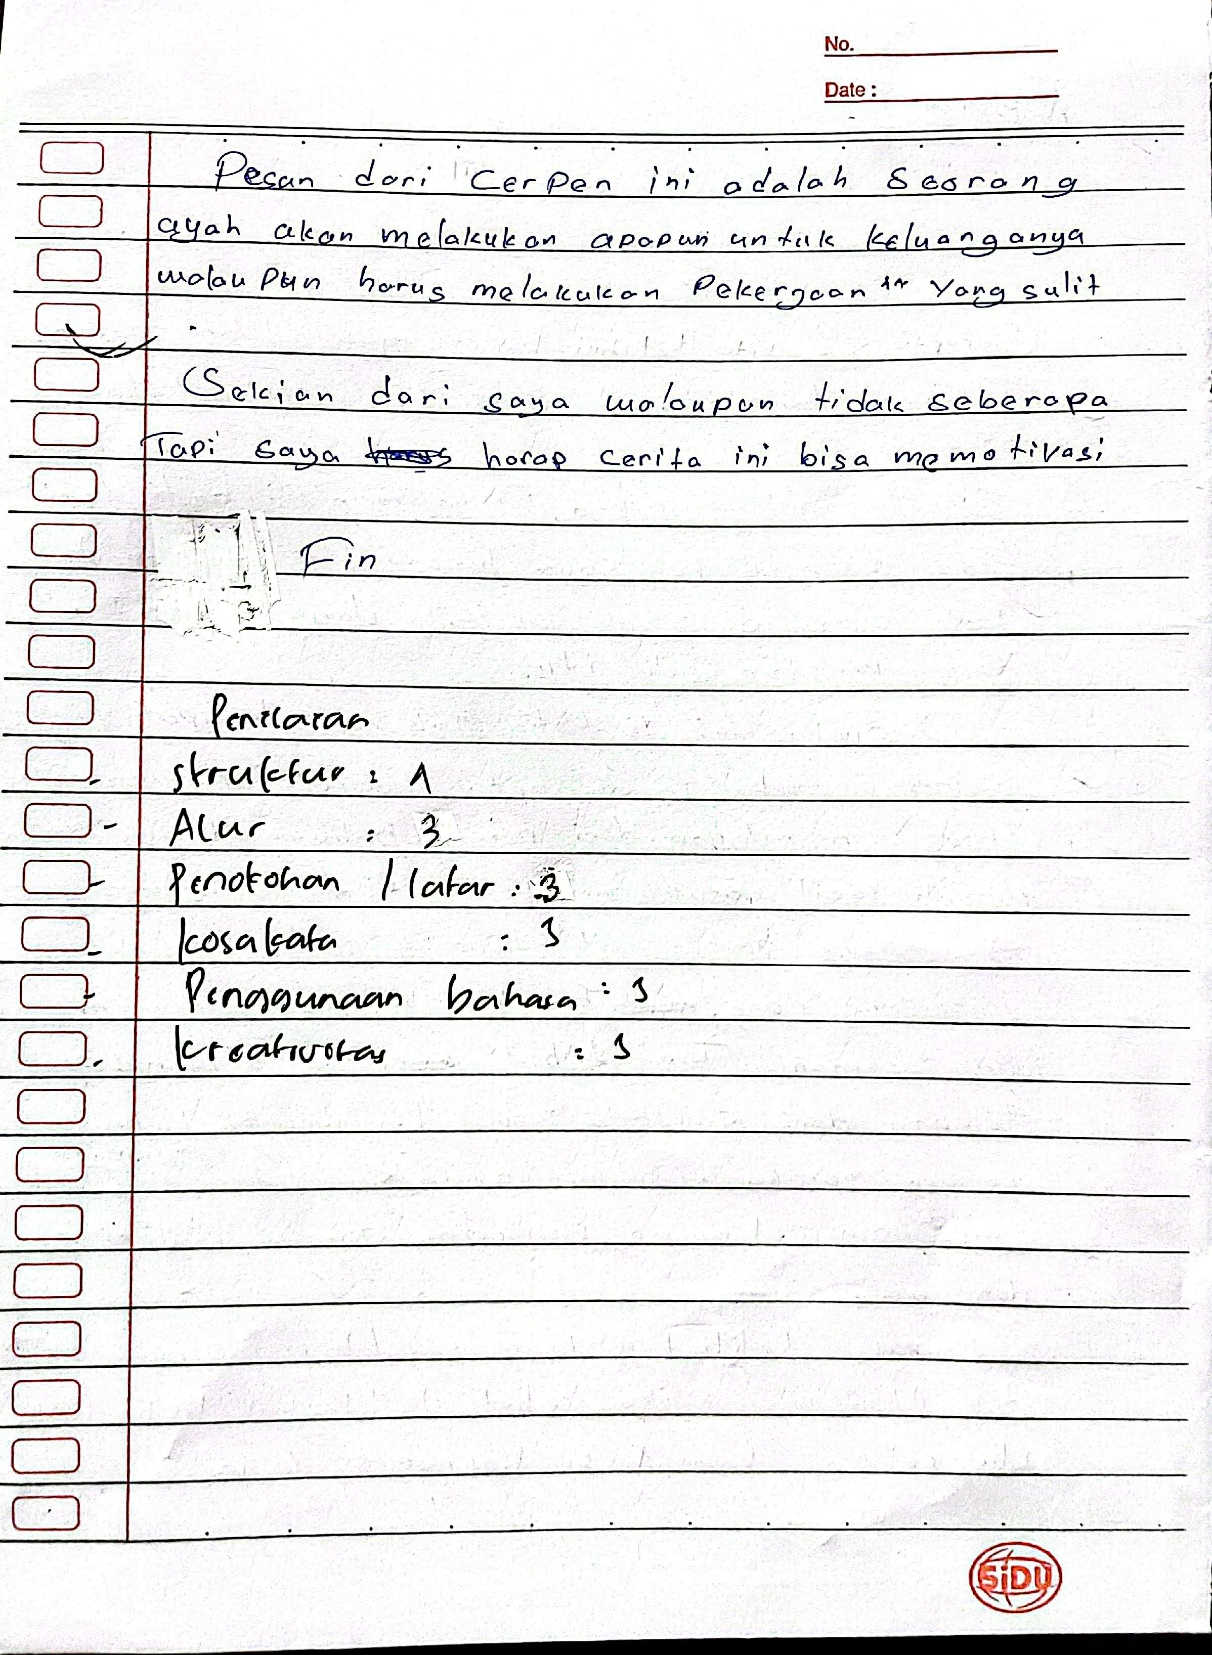 No.
Date :
Pesan dari Cerpen ini adalah Seorang
ayah akan melakukan apapun untuk keluarganya
walaupun harus melakukan Pekerjaan yang sulit
.
(Sekian dari saya walaupun tidak seberapa
Tapi saya harap cerita ini bisa memotivasi
Fin
Penilaian
struktur :
Alur : 3
Penokohan / latar : 3
kosakata : 3
Penggunaan bahasa : 3
kreativitas : 3
SiDU